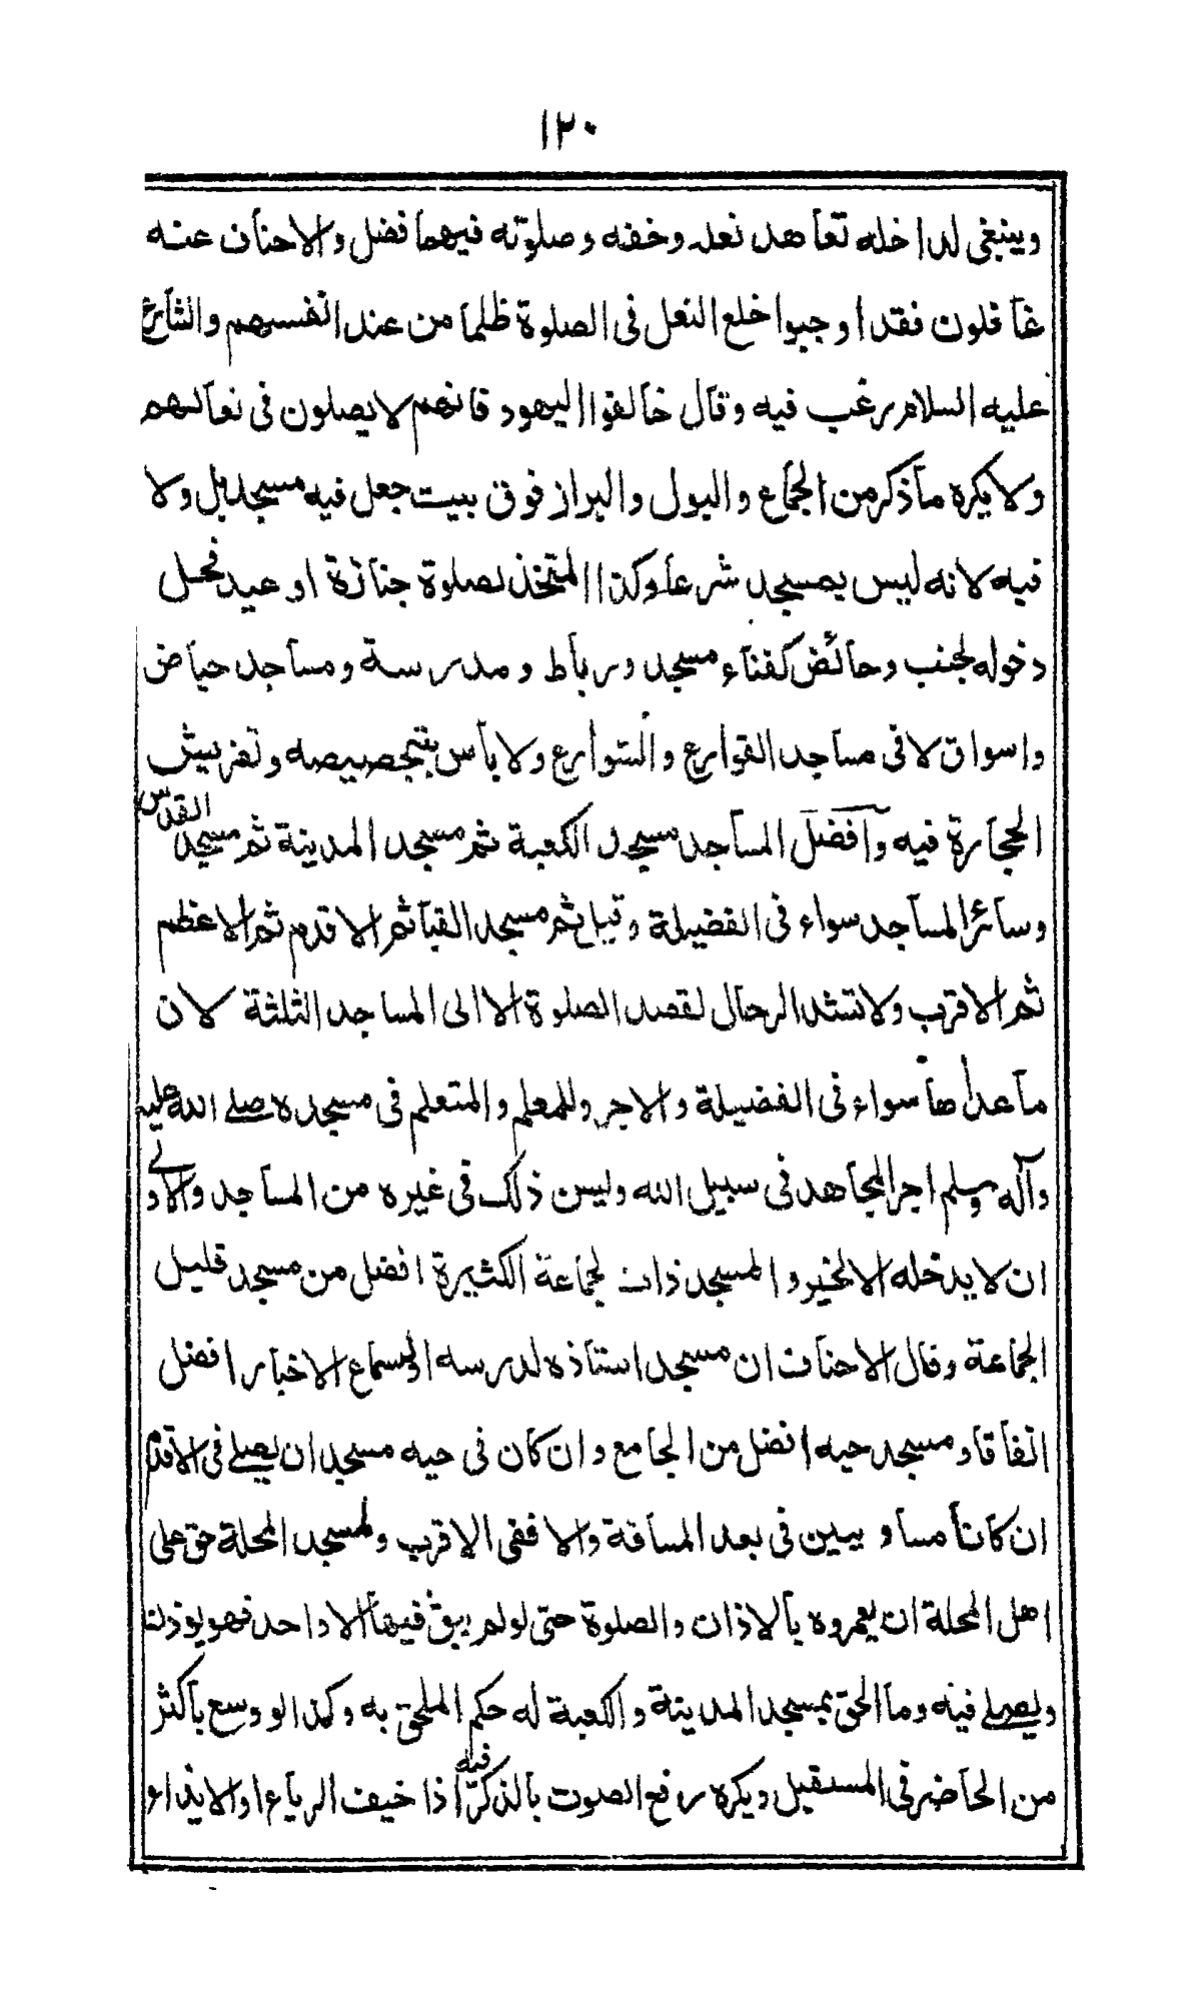 ١٢٠
وينبغى لداخله تعاهد نعله وخفه وصلوته فيهما فضل والاحناف عنه
غافلون فقد اوجبوا خلع النعل فى الصلوة ظلما من عند انفسهم والشارع
عليه السلام رغب فيه وقال خالفوا اليهود فانهم لا يصلون فى نعالهم
ولا يكره ما ذكر من الجماع والبول والبراز فوق بيت جعل فيه مسجد بل ولا
فيه لانه ليس بمسجد شرعا وكذا المتخذ لصلوة جنازة او عيد فحل
دخوله لجنب وحائض كفناء مسجد ورباط ومدرسة ومساجد حياض
واسواق لا فى مساجد القوارع والشوارع ولا بأس بتجصيصه وتفريش
الحجارة فيه وافضل المساجد مسجد الكعبة ثم مسجد المدينة ثم مسجد القدس
وسائر المساجد سواء فى الفضيلة وقيل ثم مسجد القبا ثم الاقدم ثم الاعظم
ثم الاقرب ولا تشد الرحال لقصد الصلوة الا الى المساجد الثلثة لان
ما عداها سواء فى الفضيلة والاجر وللمعلم والمتعلم فى مسجده صلے الله عليه
وآله وسلم اجر المجاهد فى سبيل الله وليس ذلك فى غيره من المساجد والاولے
ان لا يدخله الا لخير والمسجد ذات لجماعة الكثيرة افضل من مسجد قليل
الجماعة وقال الاحناف ان مسجد استاذه لدرسه او لسماع الاخبار افضل
اتفاقا ومسجد حيه افضل من الجامع وان كان فى حيه مسجدان يصلے فى الاقدم
ان كانا مساويين فى بعد المسافة والا ففى الاقرب ولمسجد المحلة حق على
اهل المحلة ان يعمروه بالاذان والصلوة حتى لو لم يبق فيها الا واحد فهو يوذن
ويصلے فيه وما الحق بمسجد المدينة والكعبة له حكم الملحق به وكذا لو وسع باكثر
من الحاضر فى المستقبل ويكره رفع الصوت بالذكر فيه اذا خيف الرياء او الايذاء